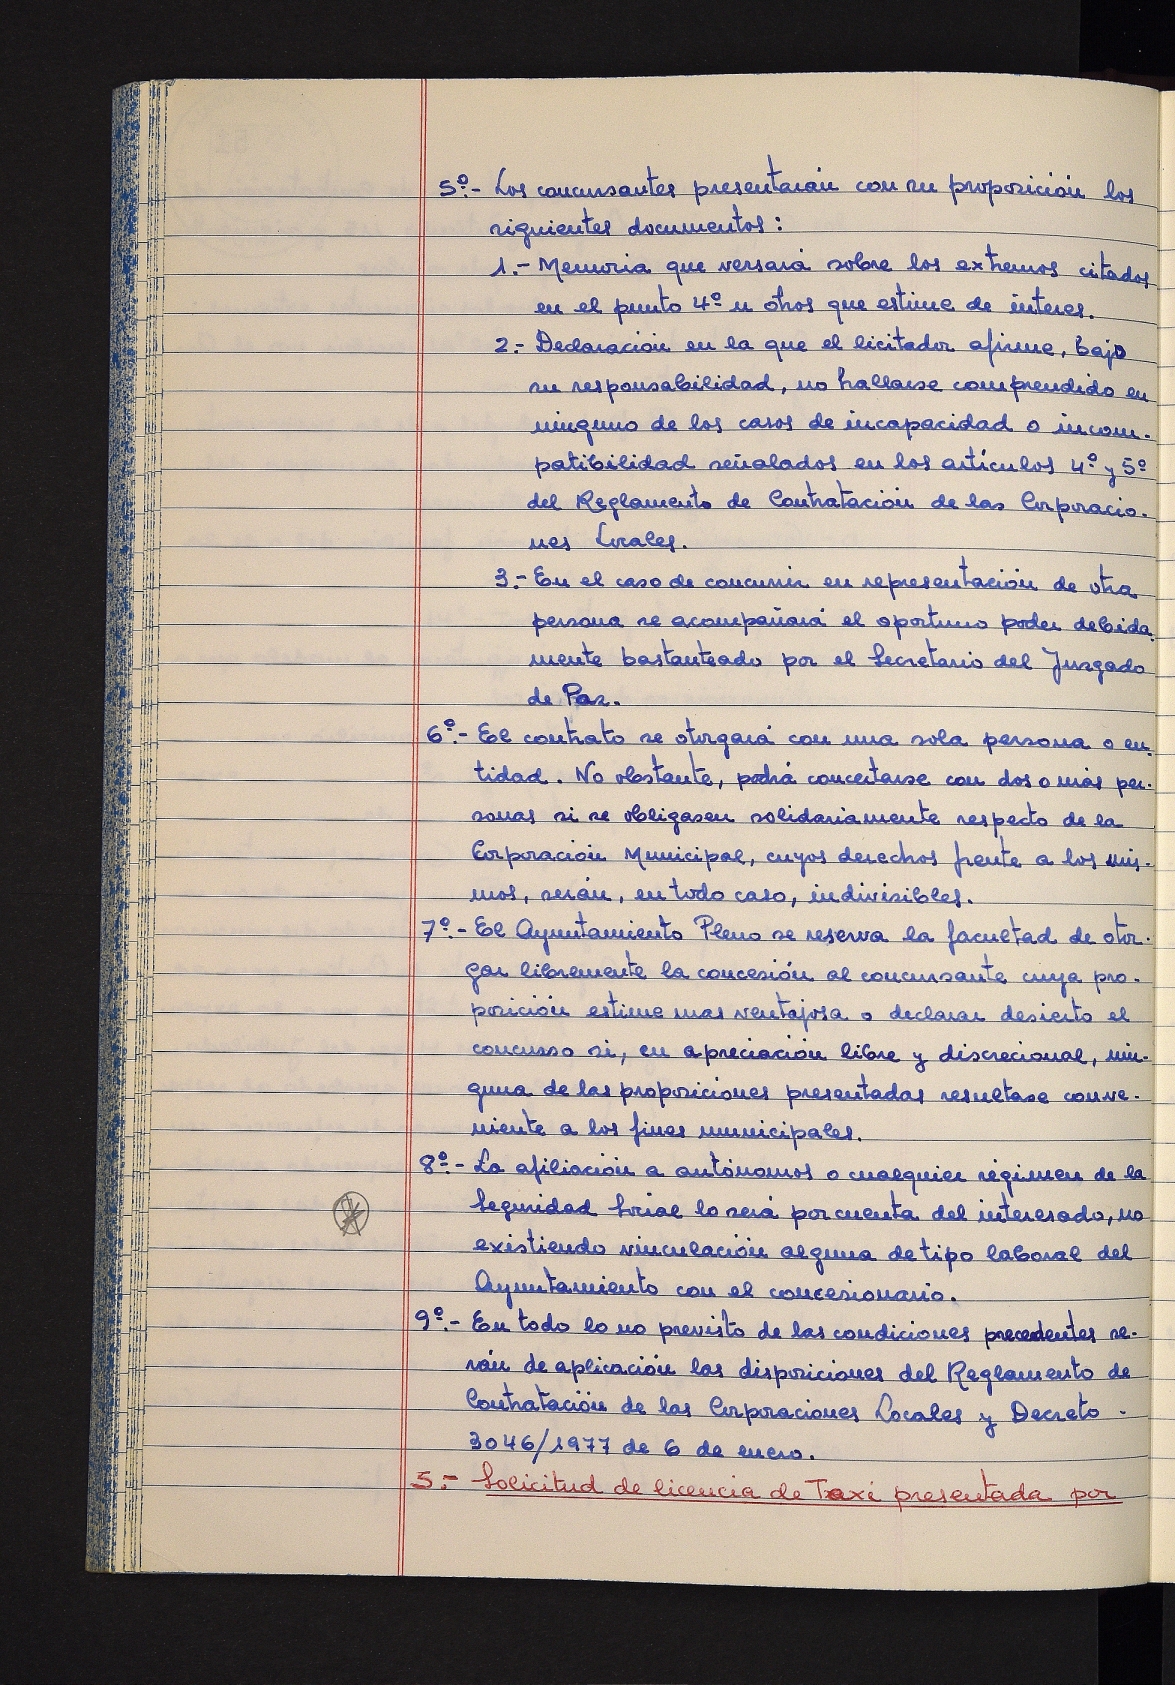 5º.- Los concursantes presentarán con su proposición los
siguientes documentos:
1.- Memoria que versará sobre los extremos citados
en el punto 4º u otros que estime de interes.
2.- Declaración en la que el licitador afirme, bajo
su responsabilidad, no hallarse comprendido en
ninguno de los casos de incapacidad o incom-
patibilidad señalados en los artículos 4º y 5º
del Reglamento de Contratación de las Corporacio-
nes Locales.
3.- En el caso de concurrir en representación de otra
persona se acompañará el oportuno poder debida-
mente bastanteado por el Secretario del Juzgado
de Paz.
6º.- El contrato se otorgará con una sola persona o en-
tidad. No obstante, podrá concertarse con dos o más per-
sonas si se obligasen solidariamente respecto de la
Corporación Municipal, cuyos derechos frente a los mis-
mos, serán, en todo caso, indivisibles.
7º.- El Ayuntamiento Pleno se reserva la facultad de otor-
gar libremente la concesión al concursante cuya pro-
posición estime mas ventajosa o declarar desierto el
concurso si, en apreciación libre y discrecional, nin-
guna de las proposiciones presentadas resultase conve-
niente a los fines municipales.
8º.- La afiliación a autónomos o cualquier régimen de la
Seguridad Social lo será por cuenta del interesado, no
existiendo vinculación alguna de tipo laboral del
Ayuntamiento con el concesionario.
9º.- En todo lo no previsto de las condiciones precedentes se-
rán de aplicación las disposiciones del Reglamento de
Contratación de las Corporaciones Locales y Decreto -
3046/1977 de 6 de enero.
5.- Solicitud de licencia de Taxi presentada por